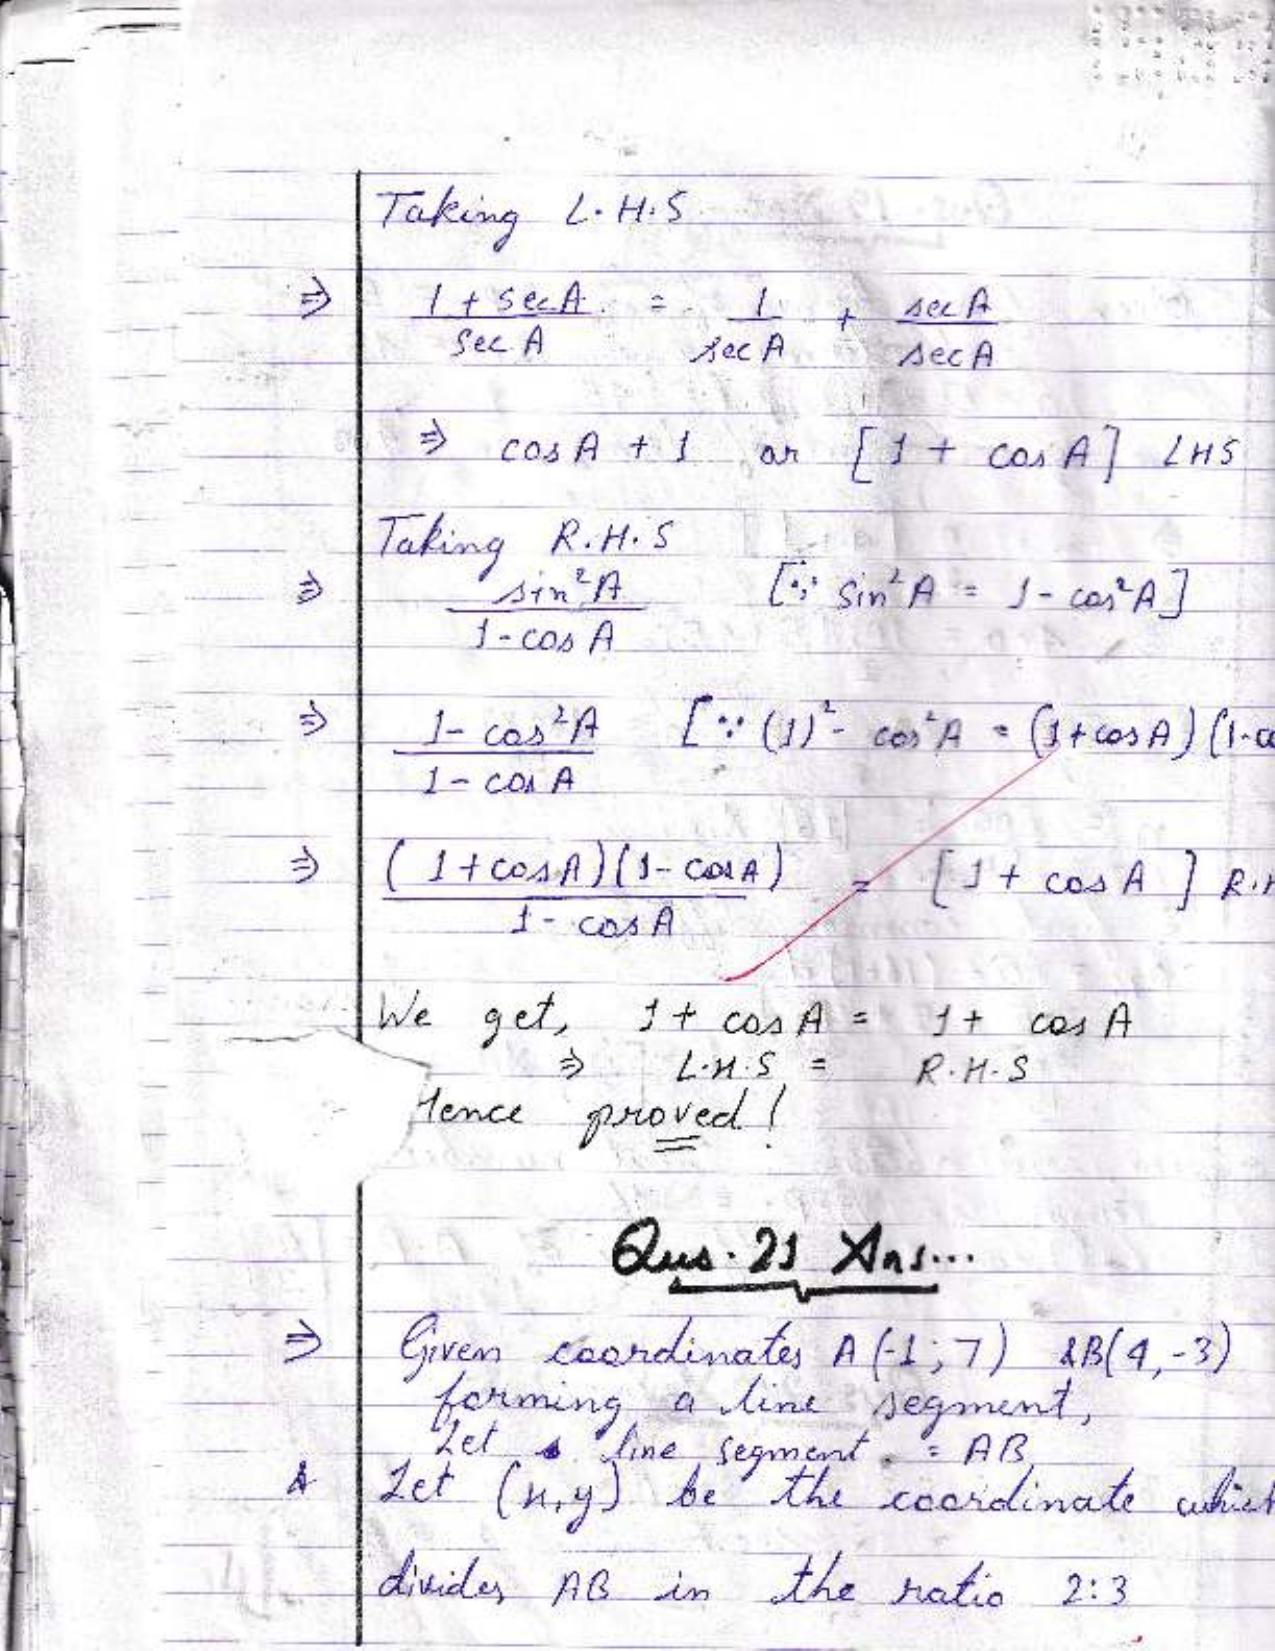 Taking L.H.S
⇒ (1 + sec A)/(sec A) = 1/(sec A) + (sec A)/(sec A)
⇒ cos A + 1 or [1 + cos A] LHS
Taking R.H.S
⇒ (sin²A)/(1 - cos A) [∵ sin²A = 1 - cos²A]
⇒ (1 - cos²A)/(1 - cos A) [∵ (1)² - cos²A = (1 + cos A) (1 - co
⇒ ((1 + cos A)(1 - cos A))/(1 - cos A) = [1 + cos A] R.H
We get, 1 + cos A = 1 + cos A
⇒ L.H.S = R.H.S
Hence proved!
Qus. 21 Ans...
⇒ Given coordinates A(-1, 7) & B(4, -3)
forming a line segment,
Let line segment = AB
& Let (x, y) be the coordinate which
divides AB in the ratio 2:3